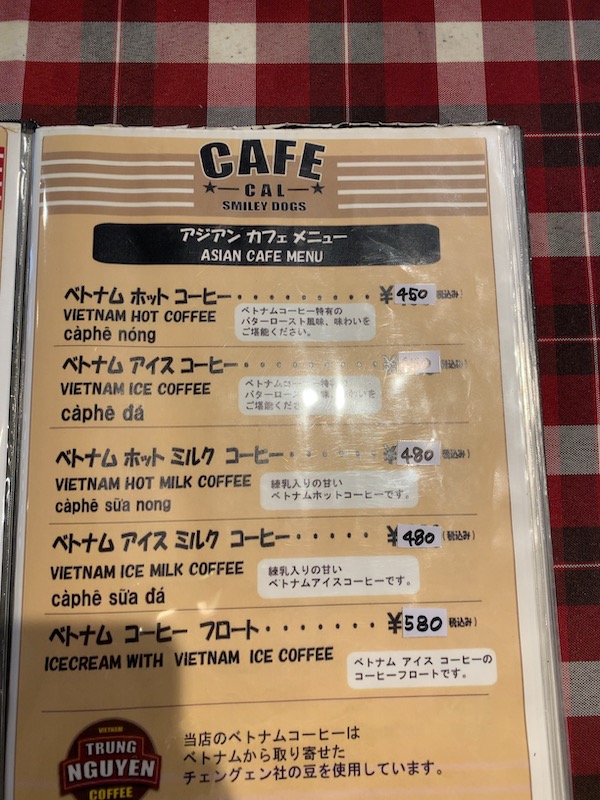 CAFE
CAL
SMILEY DOGS
アジアン カフェ メニュー
ASIAN CAFE MENU
ベトナム ホット コーヒー・・・・・・・・・・¥450(税込み)
VIETNAM HOT COFFEE
càphê nóng
ベトナムコーヒー特有の
バターロースト風味、味わいを
ご堪能ください。
ベトナム アイス コーヒー・・・・・・・・・・¥
VIETNAM ICE COFFEE
càphê đá
ベトナムコーヒー特有の
バターロースト風味、味わいを
ご堪能ください。
ベトナム ホット ミルク コーヒー・・・・・・¥480(税込み)
VIETNAM HOT MILK COFFEE
càphê sữa nong
練乳入りの甘い
ベトナムホットコーヒーです。
ベトナム アイス ミルク コーヒー・・・・・¥480(税込み)
VIETNAM ICE MILK COFFEE
càphê sữa đá
練乳入りの甘い
ベトナムアイスコーヒーです。
ベトナム コーヒー フロート・・・・・・・¥580(税込み)
ICECREAM WITH VIETNAM ICE COFFEE
ベトナム アイス コーヒーの
コーヒーフロートです。
VIETNAM
TRUNG
NGUYEN
COFFEE
当店のベトナムコーヒーは
ベトナムから取り寄せた
チェングェン社の豆を使用しています。